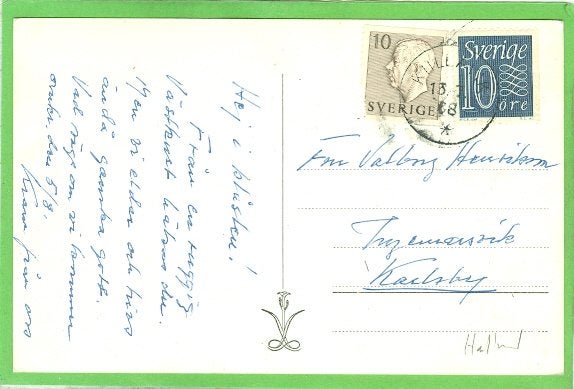 Hej i plåsten!
Från en ruggig
Västkust hälsas du.
Men vi eldar och har
ändå ganska gott.
Vad säg om vi kommer
omkr. den 5/8.
Kram från oss
10
SVERIGE
Sverige
10 öre
KULLA
13.
68
*
Fru Valborg Henrikson
Ingemarsvik
Karlsby
Halland